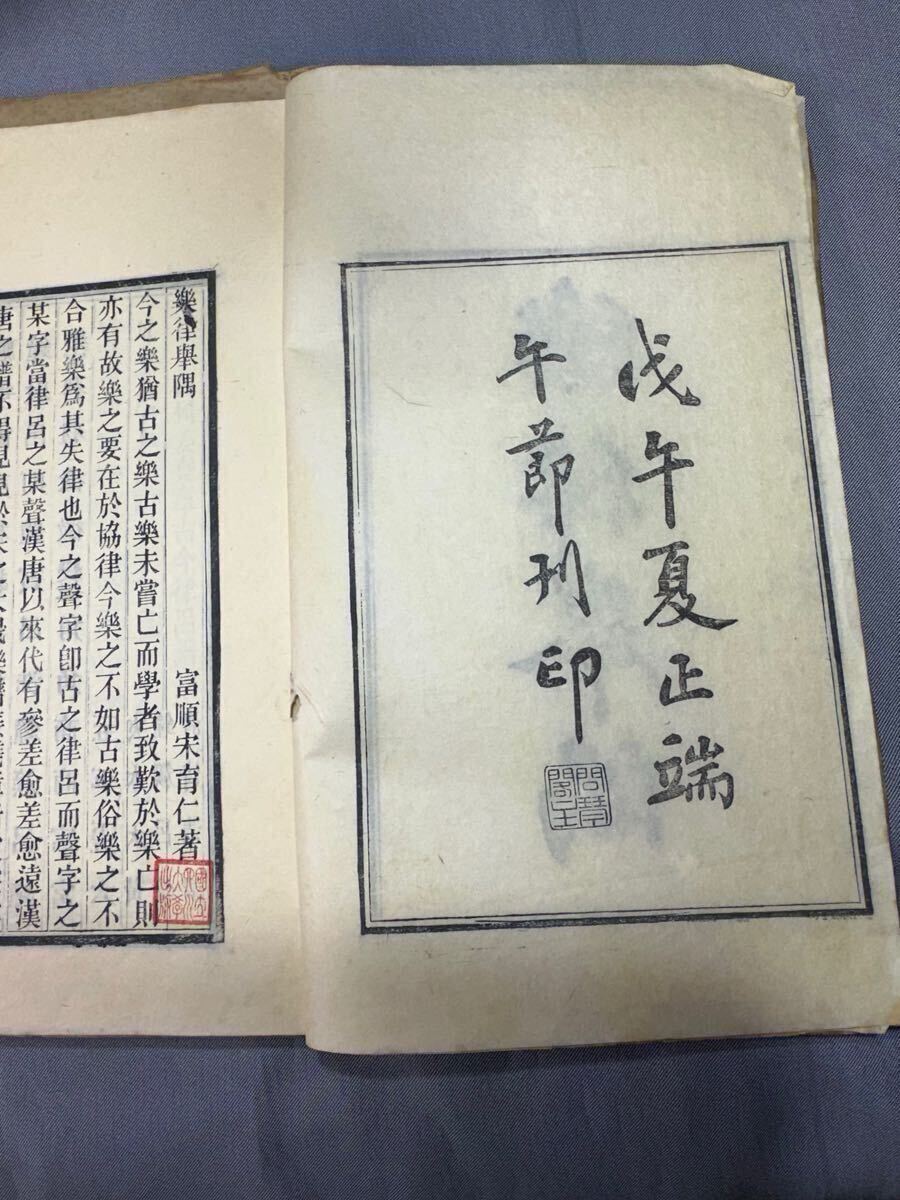 戊午夏正端
午節刊印
問琴
閣主
樂律舉隅
富順宋育仁著
今之樂猶古之樂古樂未嘗亡而學者致歎於樂亡則
亦有故樂之要在於協律今樂之不如古樂俗樂之不
合雅樂爲其失律也今之聲字卽古之律呂而聲字之
某字當律呂之某聲漢唐以來代有參差愈差愈遠漢
唐之譜不得見見於宋之